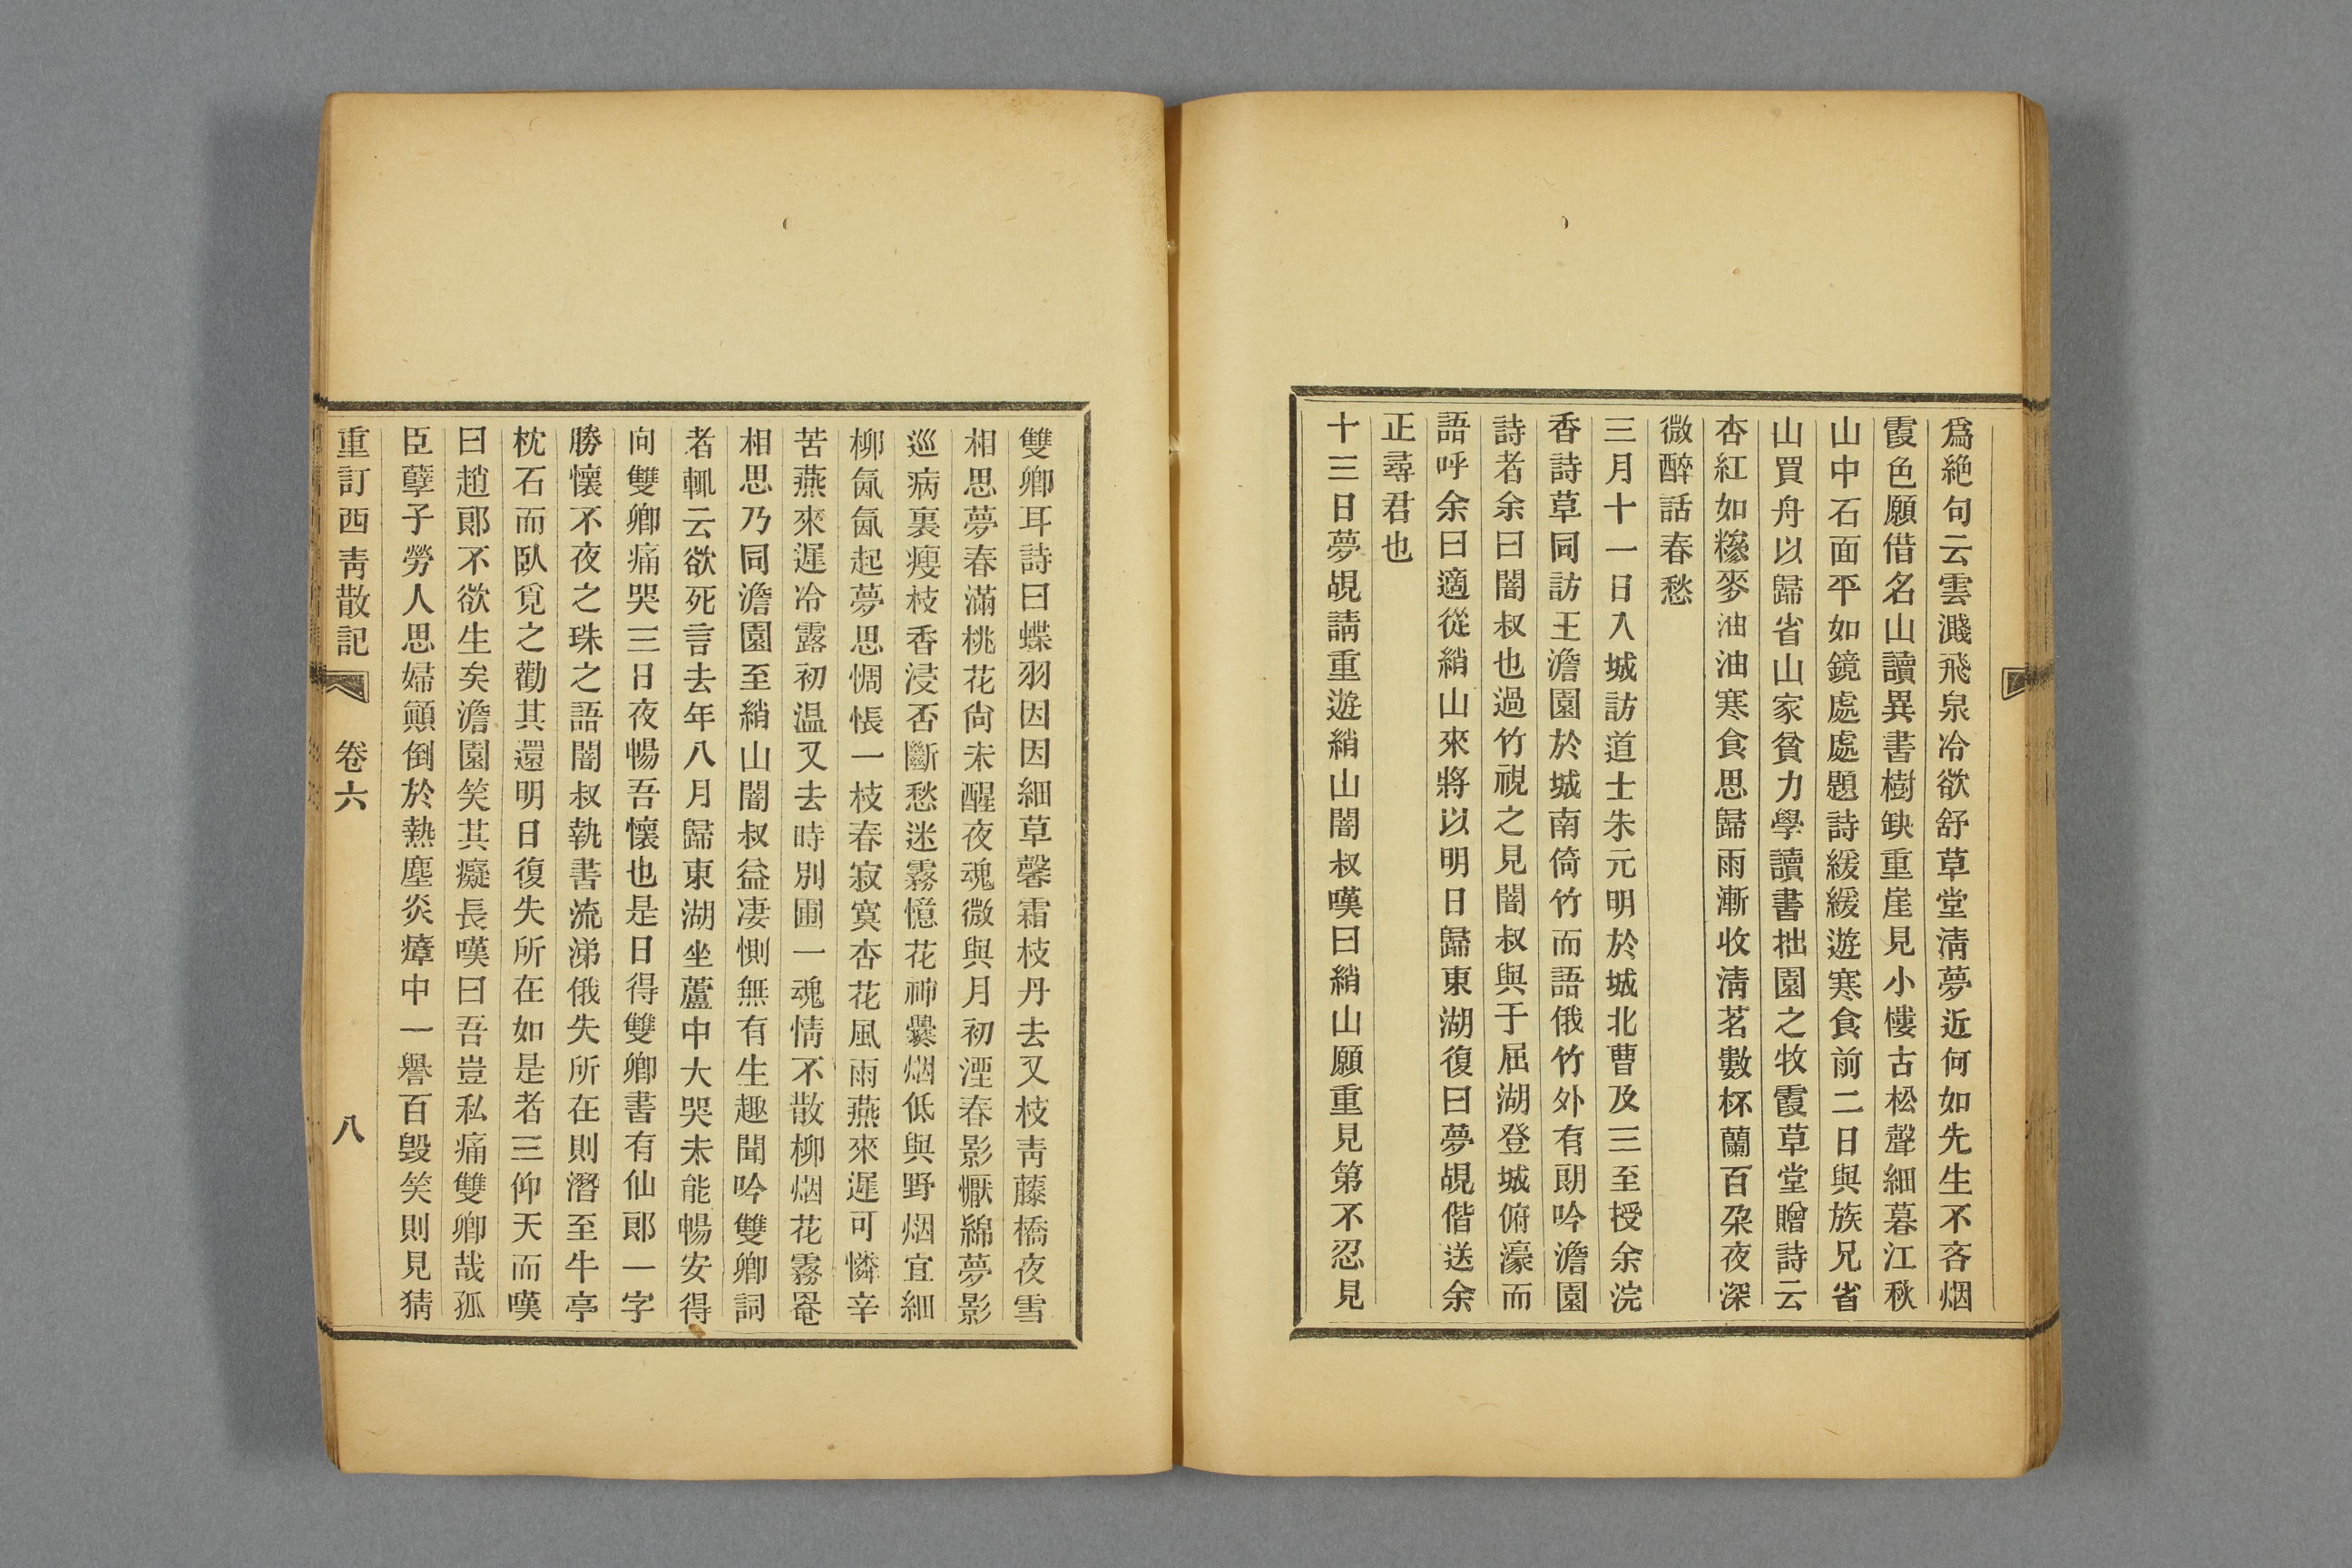 爲絶句云雲濺飛泉冷欲舒草堂淸夢近何如先生不吝烟
霞色願借名山讀異書樹缺重崖見小慺古松聲細暮江秋
山中石面平如鏡處處題詩緩緩遊寒食前二日與族兄省
山買舟以歸省山家貧力學讀書拙園之牧霞草堂贈詩云
杏紅如糝麥油油寒食思歸雨漸收淸茗數杯蘭百朶夜深
微醉話春愁
三月十一日入城訪道士朱元明於城北曹及三至授余浣
香詩草同訪王澹園於城南倚竹而語俄竹外有朗吟澹園
詩者余曰闇叔也過竹視之見闇叔與于屈湖登城俯濠而
語呼余曰適從綃山來將以明日歸東湖復曰夢覘偕送余
正尋君也
十三日夢覘請重遊綃山闇叔嘆曰綃山願重見第不忍見
雙卿耳詩曰蝶羽因因細草馨霜枝丹去又枝靑藤橋夜雪
相思夢春滿桃花尙未醒夜魂微與月初湮春影懨綿夢影
巡病裏瘦枝香浸否斷愁迷霧憶花神爨烟低與野烟宜細
柳氤氤起夢思惆悵一枝春寂寞杏花風雨燕來遲可憐辛
苦燕來遲冷露初温又去時別圃一魂情不散柳烟花霧罨
相思乃同澹園至綃山闇叔益淒惻無有生趣聞吟雙卿詞
者輒云欲死言去年八月歸東湖坐蘆中大哭未能暢安得
向雙卿痛哭三日夜暢吾懷也是日得雙卿書有仙郞一字
勝懷不夜之珠之語闇叔執書流涕俄失所在則潛至牛亭
枕石而臥覓之勸其還明日復失所在如是者三仰天而嘆
曰趙郞不欲生矣澹園笑其癡長嘆曰吾豈私痛雙卿哉孤
臣孽子勞人思婦顚倒於熱塵炎瘴中一譽百毀笑則見猜
重訂西靑散記 卷六 八